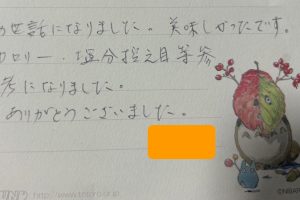 お世話になりました。美味しかったです。
カロリー、塩分控え目等参
考になりました。
ありがとうございました。
http://www.totoro.or.jp